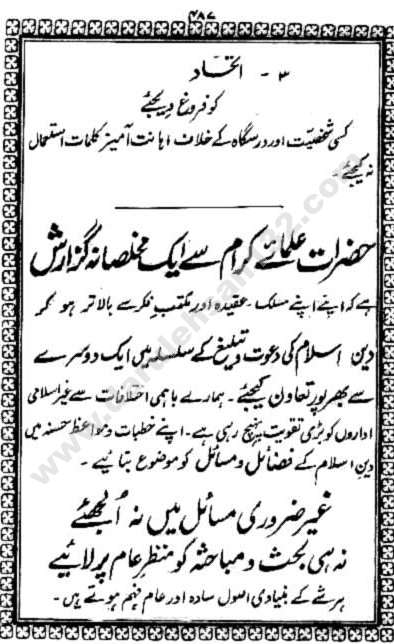 ۴۸۷
۳ - اتحاد
کو فروغ دیجئے
کسی شخصیت اور درسگاہ کے خلاف اہانت آمیز کلمات استعمال
نہ کیجئے۔
حضرات علمائے کرام سے ایک مخلصانہ گزارش
ہے کہ اپنے اپنے مسلک۔ عقیدہ اور مکتب فکر سے بالاتر ہو کر
دین اسلام کی دعوت و تبلیغ کے سلسلہ میں ایک دوسرے
سے بھرپور تعاون کیجئے۔ ہمارے باہمی اختلافات سے غیر اسلامی
اداروں کو بڑی تقویت پہنچ رہی ہے۔ اپنے خطبات و مواعظ حسنہ میں
دین اسلام کے فضائل و مسائل کو موضوع بنائیے۔
غیر ضروری مسائل میں نہ اُلجھئے
نہ ہی بحث و مباحثہ کو منظر عام پر لائیے
ہر شے کے بنیادی اصول سادہ اور عام فہم ہوتے ہیں۔